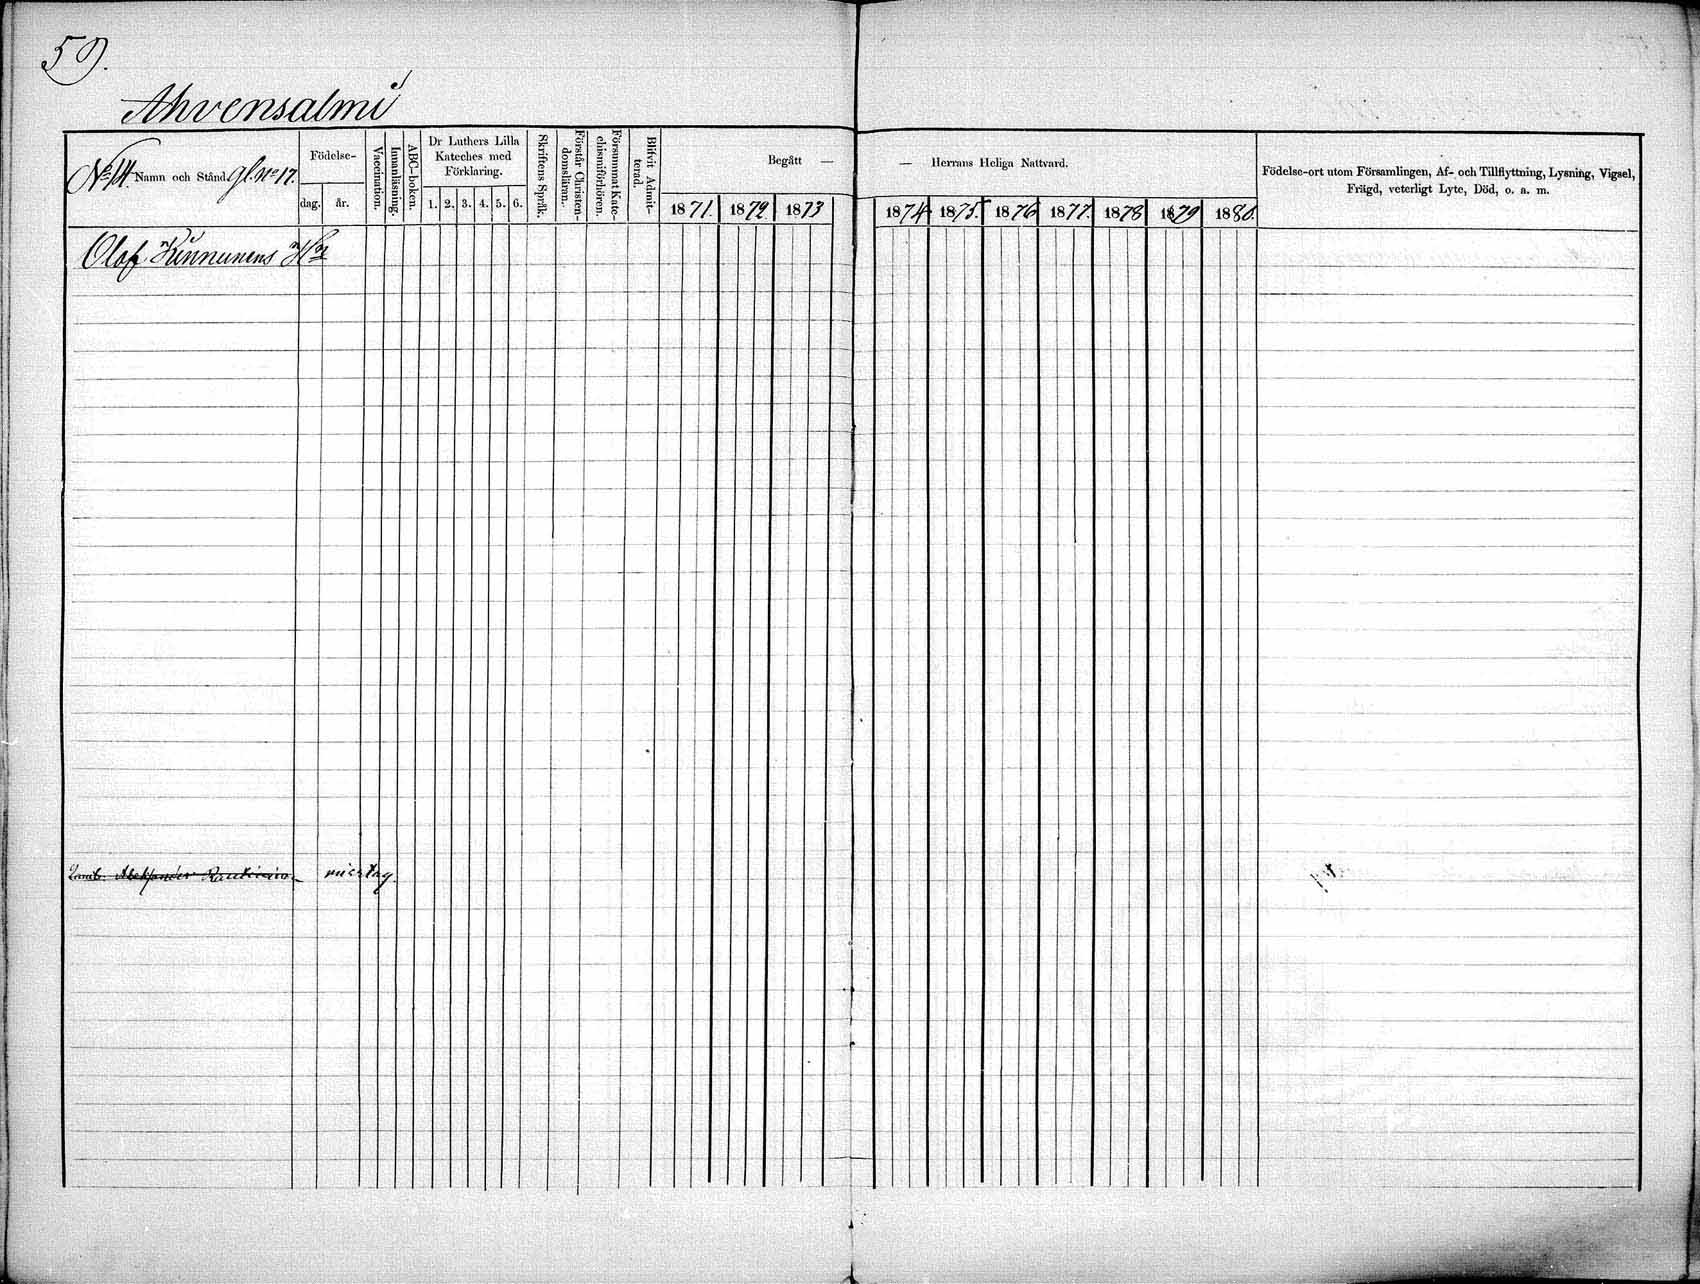 59.
Ahvensalmi
No 14. Namn och Stånd. gl. No 17.
Födelse-
dag. år.
Vaccination.
Innanläsning.
ABC-boken.
Dr Luthers Lilla
Kateches med
Förklaring.
1. 2. 3. 4. 5. 6.
Skriftens Språk.
Förstår Christen-
domsläran.
Försummat Kate-
chismiförhören.
Blifvit Admit-
terad.
Begått —
1871. 1872 1873
— Herrans Heliga Nattvard.
1874 1875. 1876 1877. 1878 1879 1880.
Födelse-ort utom Församlingen, Af- och Tillflyttning, Lysning, Vigsel,
Frägd, veterligt Lyte, Död, o. a. m.
Olof Kinnunens
misstag.